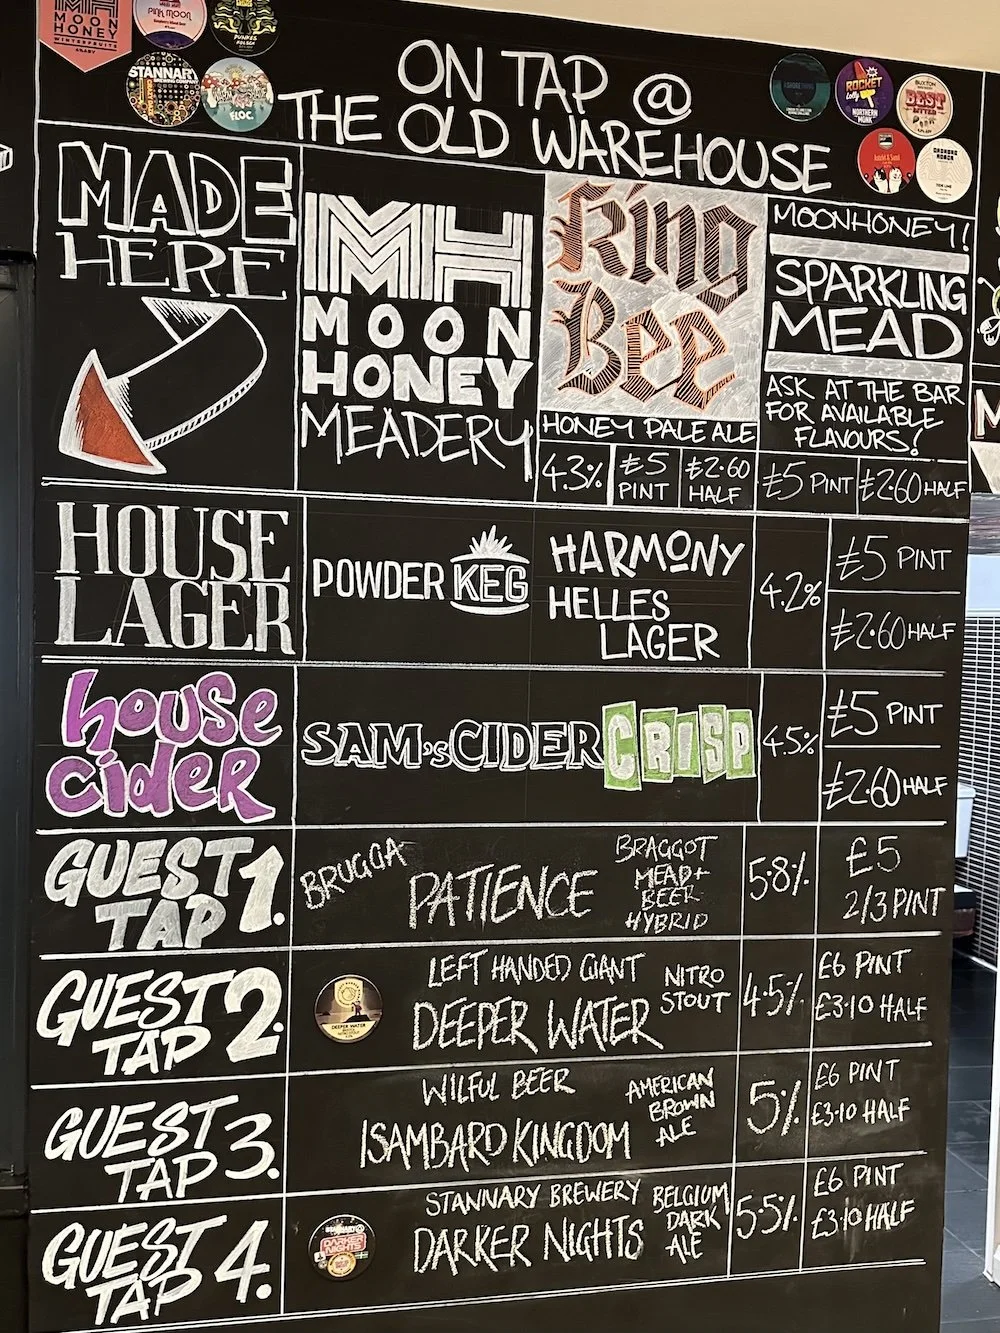 MH
MOON
HONEY
PINK MOON
STANNARY
FLOC.
ROCKET
Lolly
NORTHERN
MONK
BUXTON
BEST
BITTER
ON TAP @
THE OLD WAREHOUSE
MADE
HERE
MH
MOON
HONEY
MEADERY
King
Bee
HONEY PALE ALE
4.3%
£5
PINT
£2.60
HALF
MOONHONEY!
SPARKLING
MEAD
ASK AT THE BAR
FOR AVAILABLE
FLAVOURS!
£5 PINT
£2.60 HALF
HOUSE
LAGER
POWDER KEG
HARMONY
HELLES
LAGER
4.2%
£5 PINT
£2.60 HALF
house
cider
SAM'S CIDER CRISP
4.5%
£5 PINT
£2.60 HALF
GUEST
TAP 1.
BRUGGA
PATIENCE
BRAGGOT
MEAD +
BEER
HYBRID
5.8%
£5
2/3 PINT
GUEST
TAP 2.
DEEPER WATER
LEFT HANDED GIANT
DEEPER WATER
NITRO
STOUT
4.5%
£6 PINT
£3.10 HALF
GUEST
TAP 3.
WILFUL BEER
ISAMBARD KINGDOM
AMERICAN
BROWN
ALE
5%
£6 PINT
£3.10 HALF
GUEST
TAP 4.
DARKER
NIGHTS
STANNARY BREWERY
DARKER NIGHTS
BELGIUM
DARK
ALE
5.5%
£6 PINT
£3.10 HALF